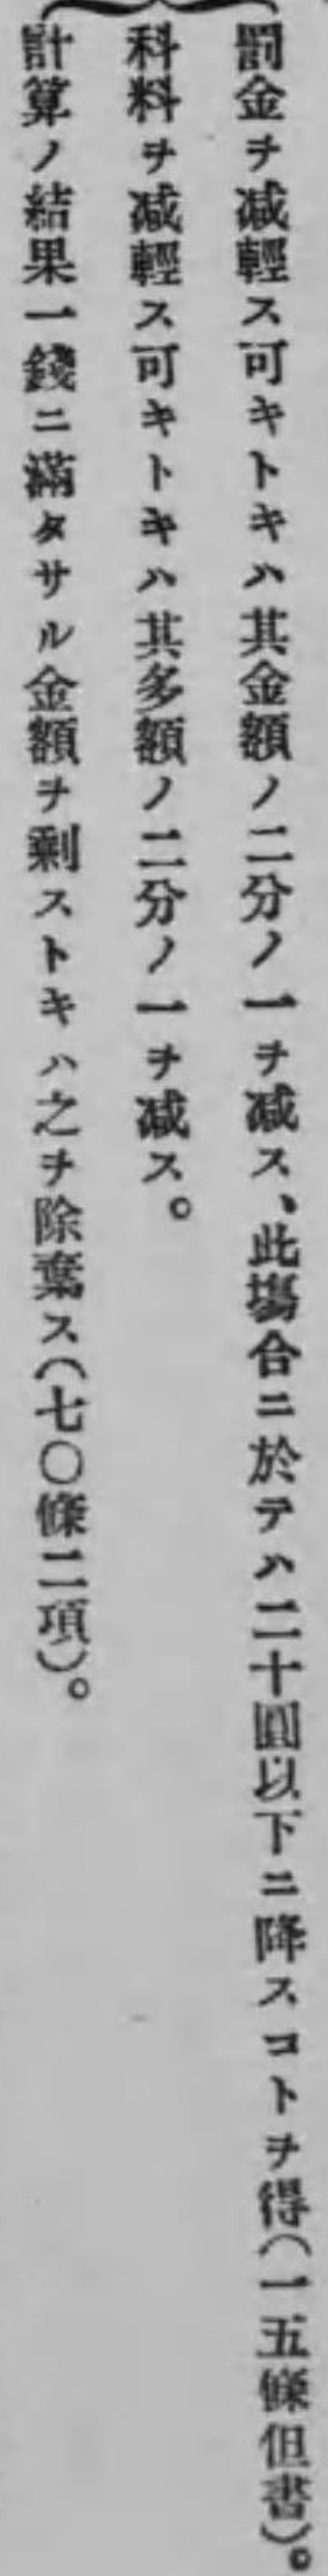 罰金ヲ减輕ス可キトキハ其金額ノ二分ノ一ヲ减ス、此塲合ニ於テハ二十圓以下ニ降スコトヲ得(一五條但書)。
科料ヲ减輕ス可キトキハ其多額ノ二分ノ一ヲ减ス。
計算ノ結果一錢ニ滿タサル金額ヲ剩ストキハ之ヲ除棄ス(七〇條二項)。